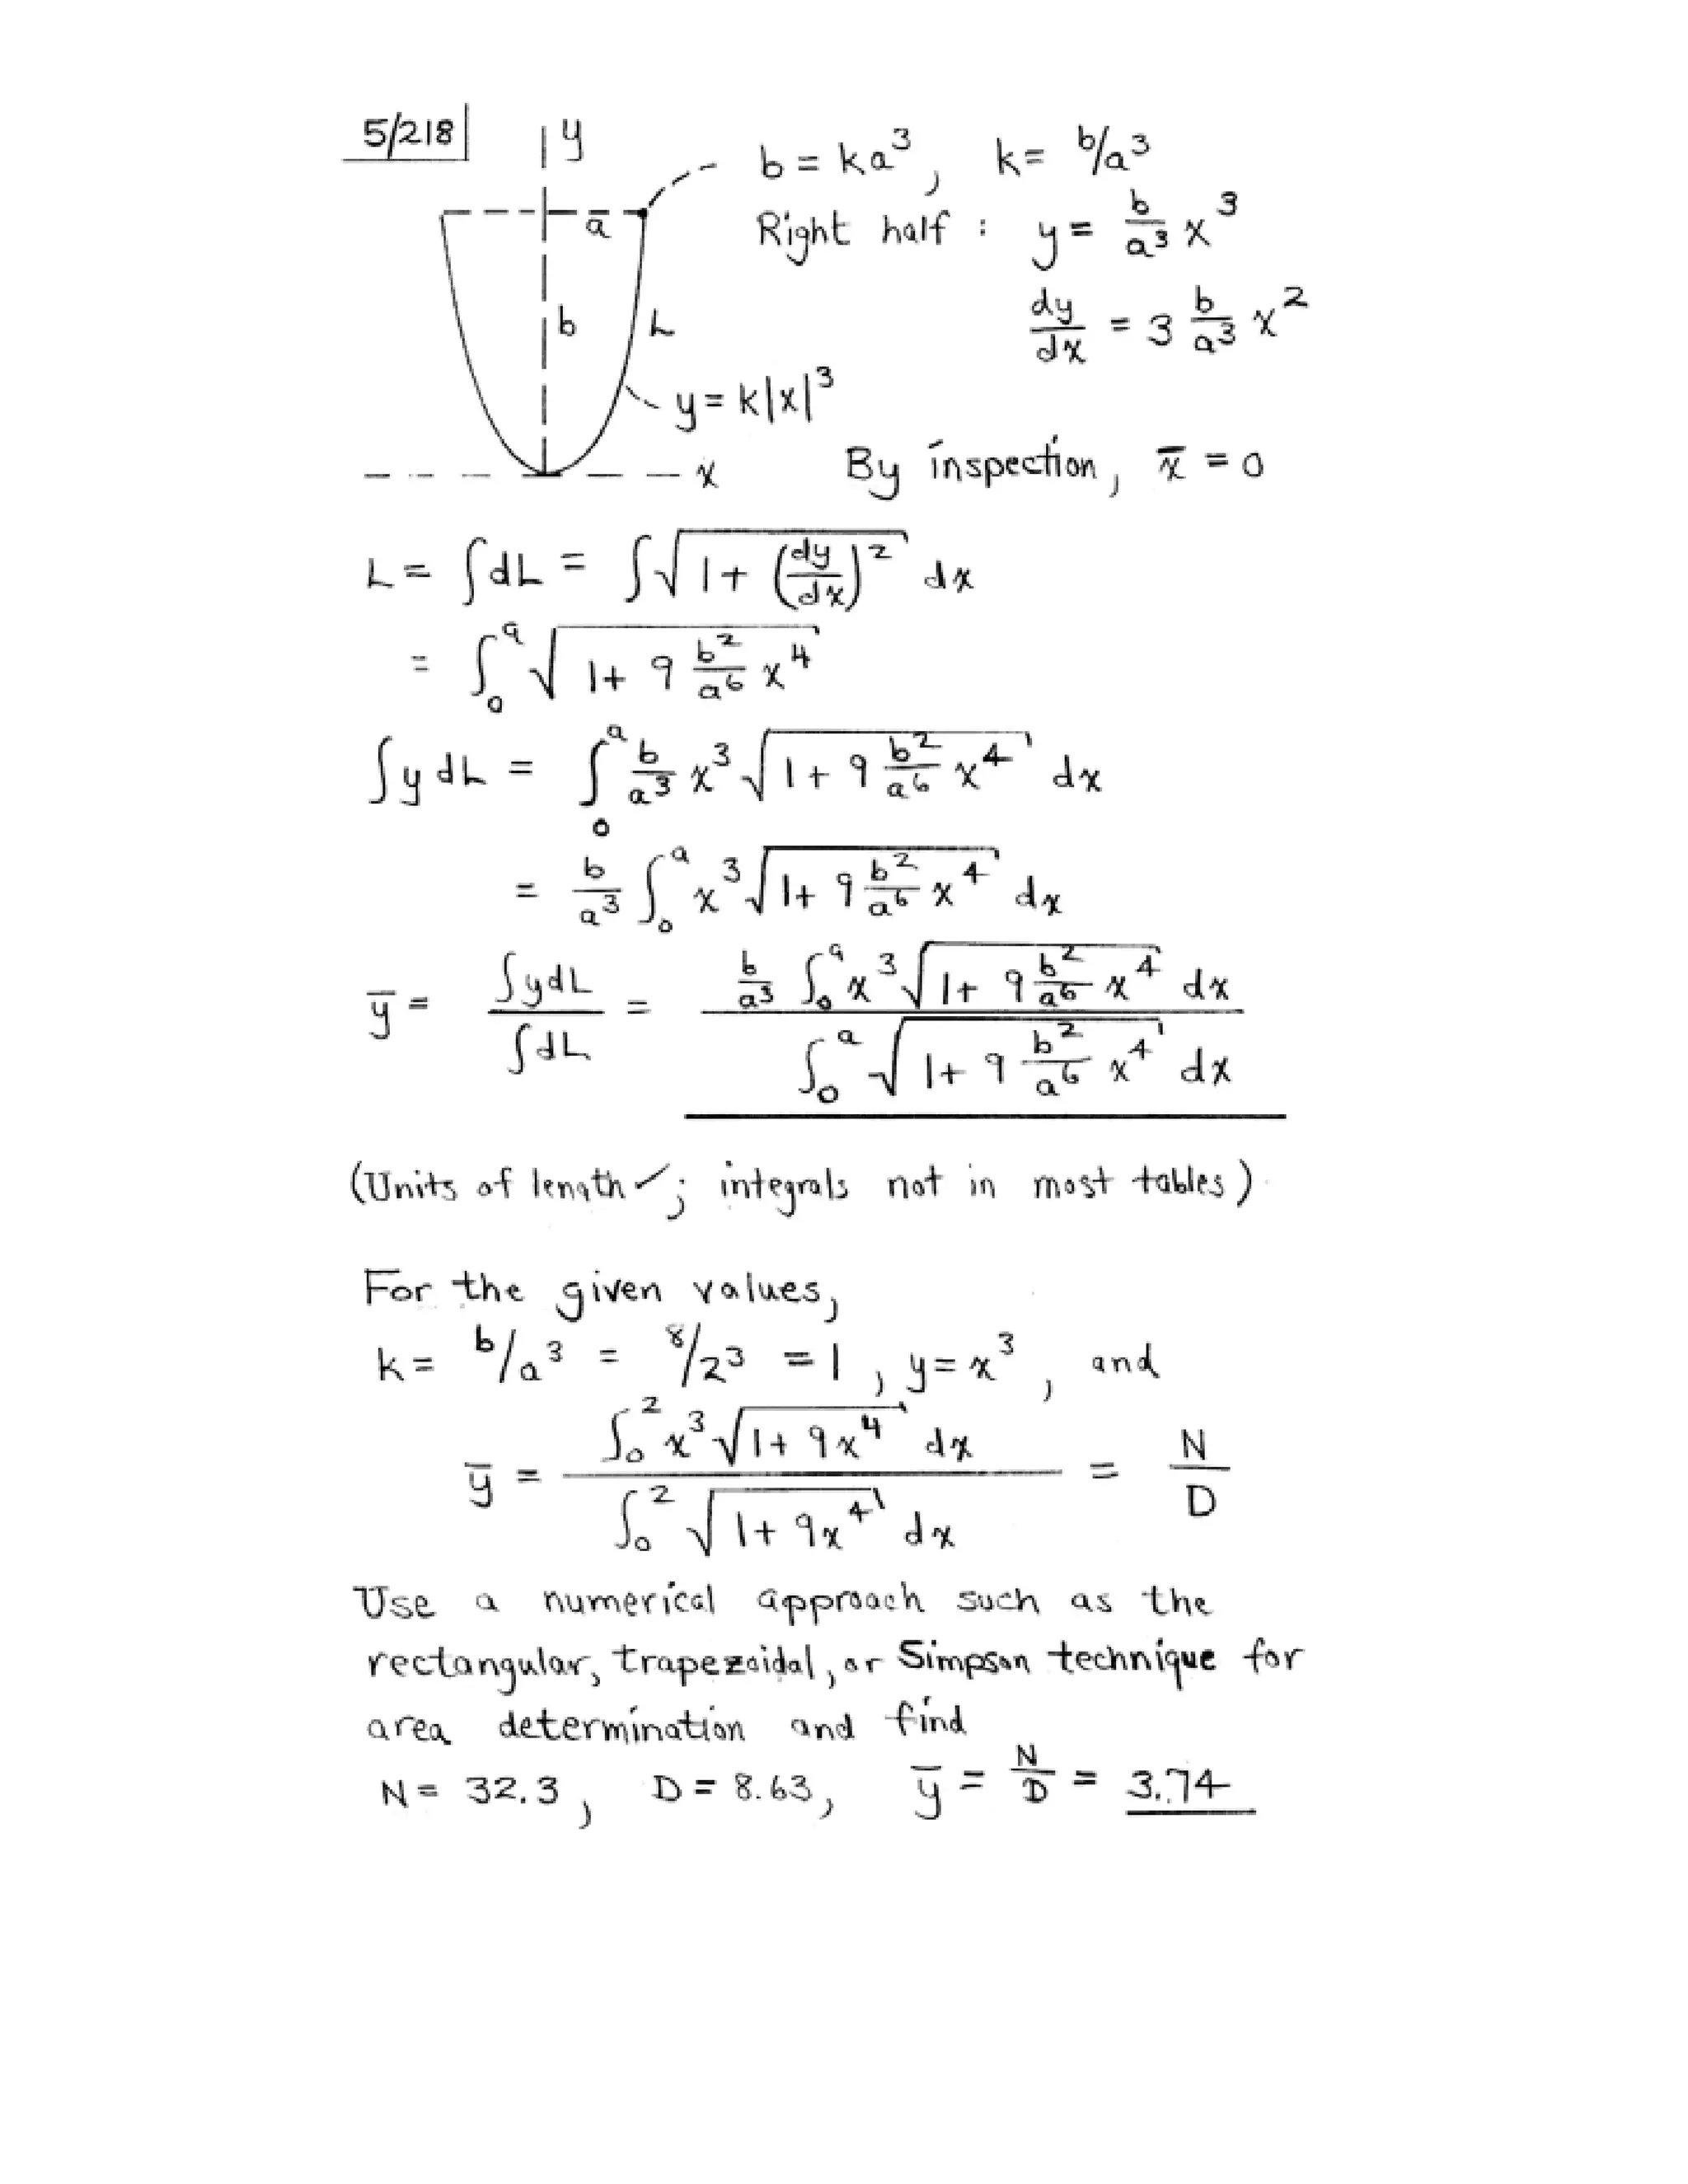 5/218
y
b = ka³, k = b/a³
a
Right half : y = b/a³ x³
b
L
dy/dx = 3 b/a³ x²
y = k|x|³
x
By inspection, x̄ = 0
L = ∫dL = ∫√(1 + (dy/dx)²) dx
= ∫₀ᵃ √(1 + 9 b²/a⁶ x⁴)
∫y dL = ∫₀ᵃ b/a³ x³ √(1 + 9 b²/a⁶ x⁴) dx
= b/a³ ∫₀ᵃ x³ √(1 + 9 b²/a⁶ x⁴) dx
ȳ = ∫ydL / ∫dL = b/a³ ∫₀ᵃ x³ √(1 + 9 b²/a⁶ x⁴) dx / ∫₀ᵃ √(1 + 9 b²/a⁶ x⁴) dx
(Units of length ✓; integrals not in most tables)
For the given values,
k = b/a³ = 8/2³ = 1, y = x³, and
ȳ = ∫₀² x³ √(1 + 9x⁴) dx / ∫₀² √(1 + 9x⁴) dx = N/D
Use a numerical approach such as the
rectangular, trapezoidal, or Simpson technique for
area determination and find
N = 32.3, D = 8.63, ȳ = N/D = 3.74